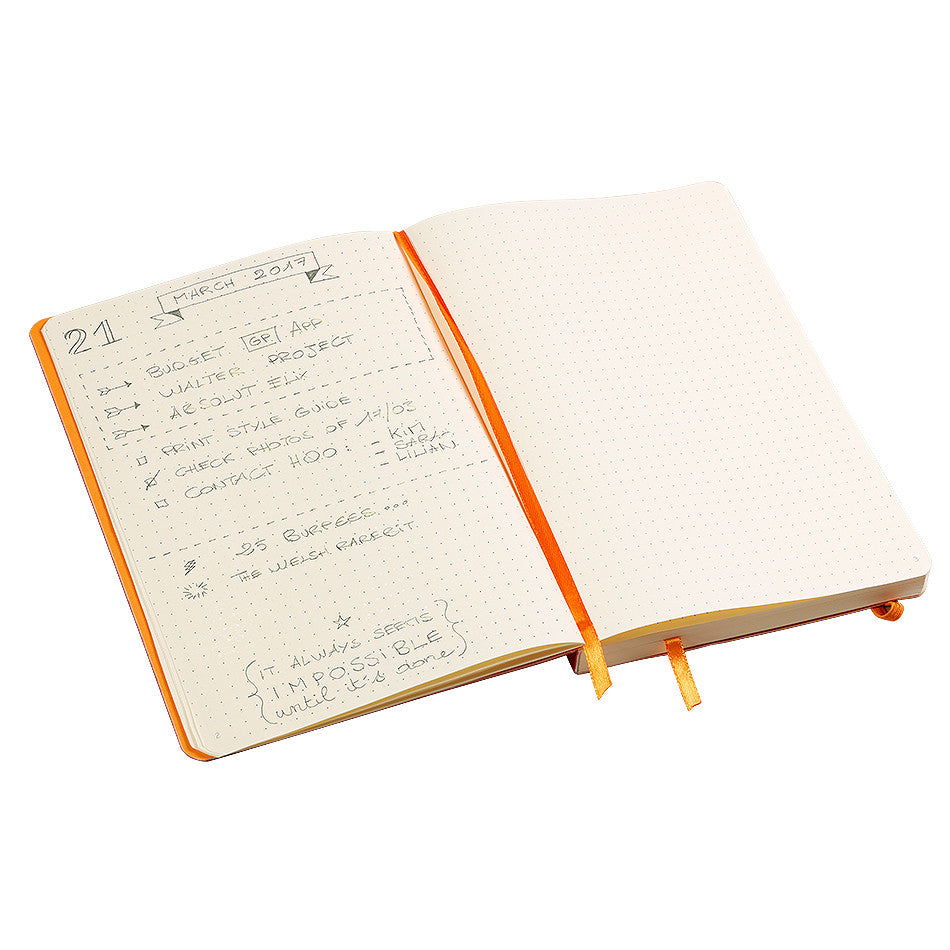 MARCH 2017
21
BUDGET GP APP
WALTER PROJECT
ABSOLUT ELIX
PRINT STYLE GUIDE
CHECK PHOTOS OF 17/03
CONTACT HOO: - KIM
- SARAH
- LILIAN
25 BURPEES...
THE WELSH RAREBIT
IT ALWAYS SEEMS
IMPOSSIBLE
until it's done
2